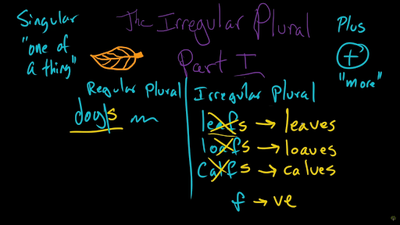 Singular
"one of
a thing"
The Irregular Plural
Part I
Plus
+
"more"
Regular Plural
dogs
Irregular Plural
leafs → leaves
loafs → loaves
Calfs → calves
f → ve